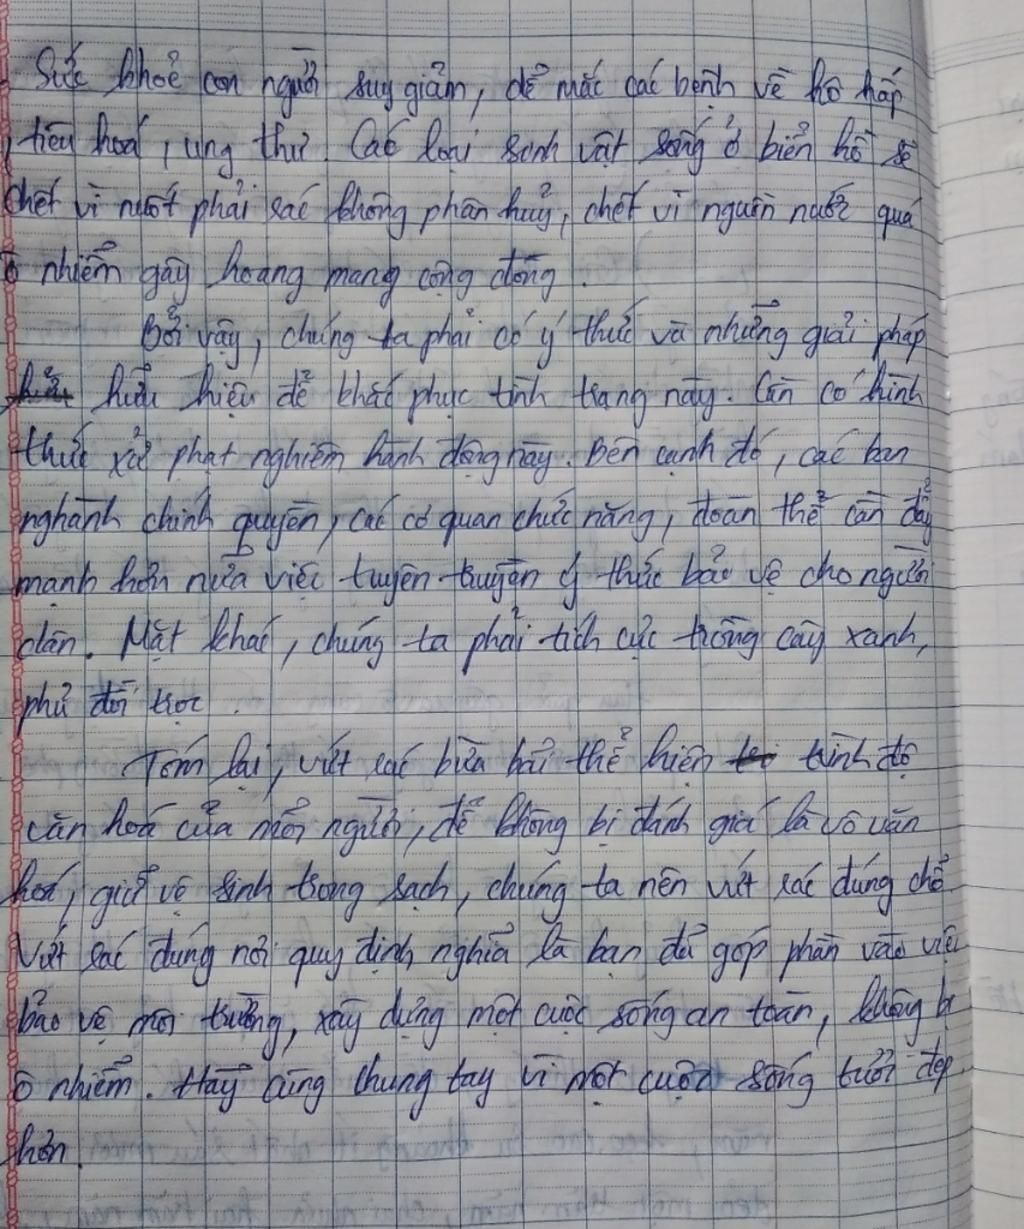 Sức khoẻ con người suy giảm, dễ mắc các bệnh về hô hấp
, tiêu hoá, ung thư. Các loại sinh vật sống ở biển hồ sẽ
chết vì nuốt phải rác không phân huỷ, chết vì nguồn nước quá
ô nhiễm gây hoang mang cộng đồng.
Bởi vậy, chúng ta phải có ý thức và những giải pháp
hữu hiệu để khắc phục tình trạng này. Cần có hình
thức xử phạt nghiêm hành động này. Bên cạnh đó, các ban
nghành chính quyền, các cơ quan chức năng, đoàn thể cần đẩy
mạnh hơn nữa việc tuyên truyền ý thức bảo vệ cho người
dân. Mặt khác, chúng ta phải tích cực trồng cây xanh,
phủ đồi trọc.
Tóm lại, vứt rác bừa bãi thể hiện trình độ
văn hoá của mỗi người, để không bị đánh giá là vô văn
hoá, giữ vệ sinh trong sạch, chúng ta nên vứt rác đúng chỗ
Vứt rác đúng nơi quy định nghĩa là bạn đã góp phần vào việc
bảo vệ môi trường, xây dựng một cuộc sống an toàn, không bị
ô nhiễm. Hãy cùng chung tay vì một cuộc sống tươi đẹp
hơn.